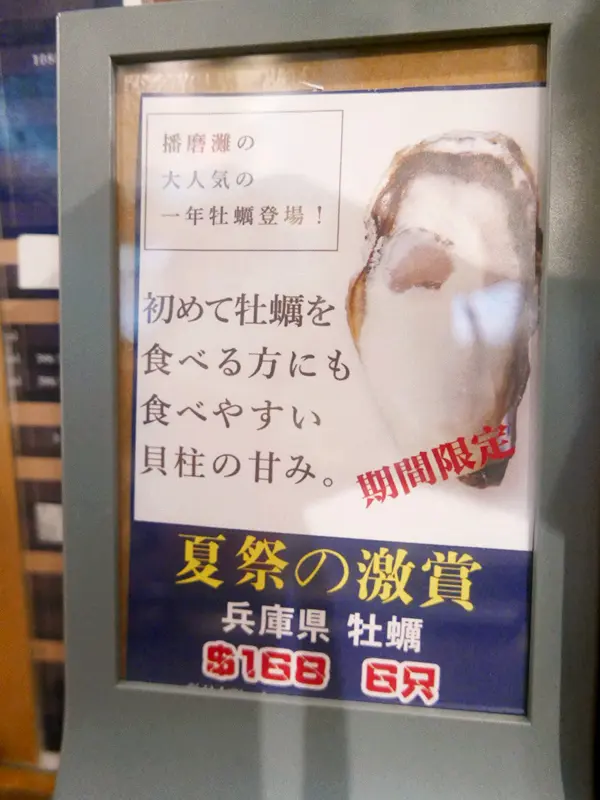 播磨灘の
大人気の
一年牡蠣登場！
初めて牡蠣を
食べる方にも
食べやすい
貝柱の甘み。
期間限定
夏祭の激賞
兵庫県 牡蠣
$168 6只